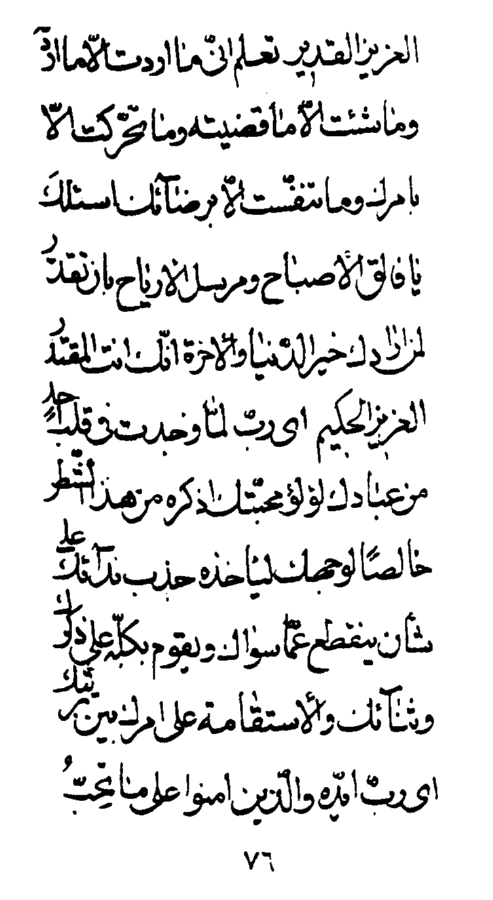 العزيز القدير تعلم انّى ما اردت الّا ما اردته
وما شئت الّا ما قضيته وما تحرّكت الّا
بامرك وما تنفّست الّا برضآئك اسئلك
يا فالق الاصباح ومرسل الارياح بان تقدّر
لمن ارادك خير الدّنيا والاخرة انّك انت المقتدر
العزيز الحكيم اى ربّ لمّا وجدت فى قلب احدٍ
من عبادك لؤلؤ محبّتك اذكره من هذا الشّطر
خالصًا لوجهك ليأخذه جذب ندآئك على
شأن ينقطع عمّا سواك ويقوم بكلّه على ذكرك
وثنآئك والاستقامة على امرك بين بريّتك
اى ربّ ايّده والّذين امنوا على ما تحبُّ
٧٦